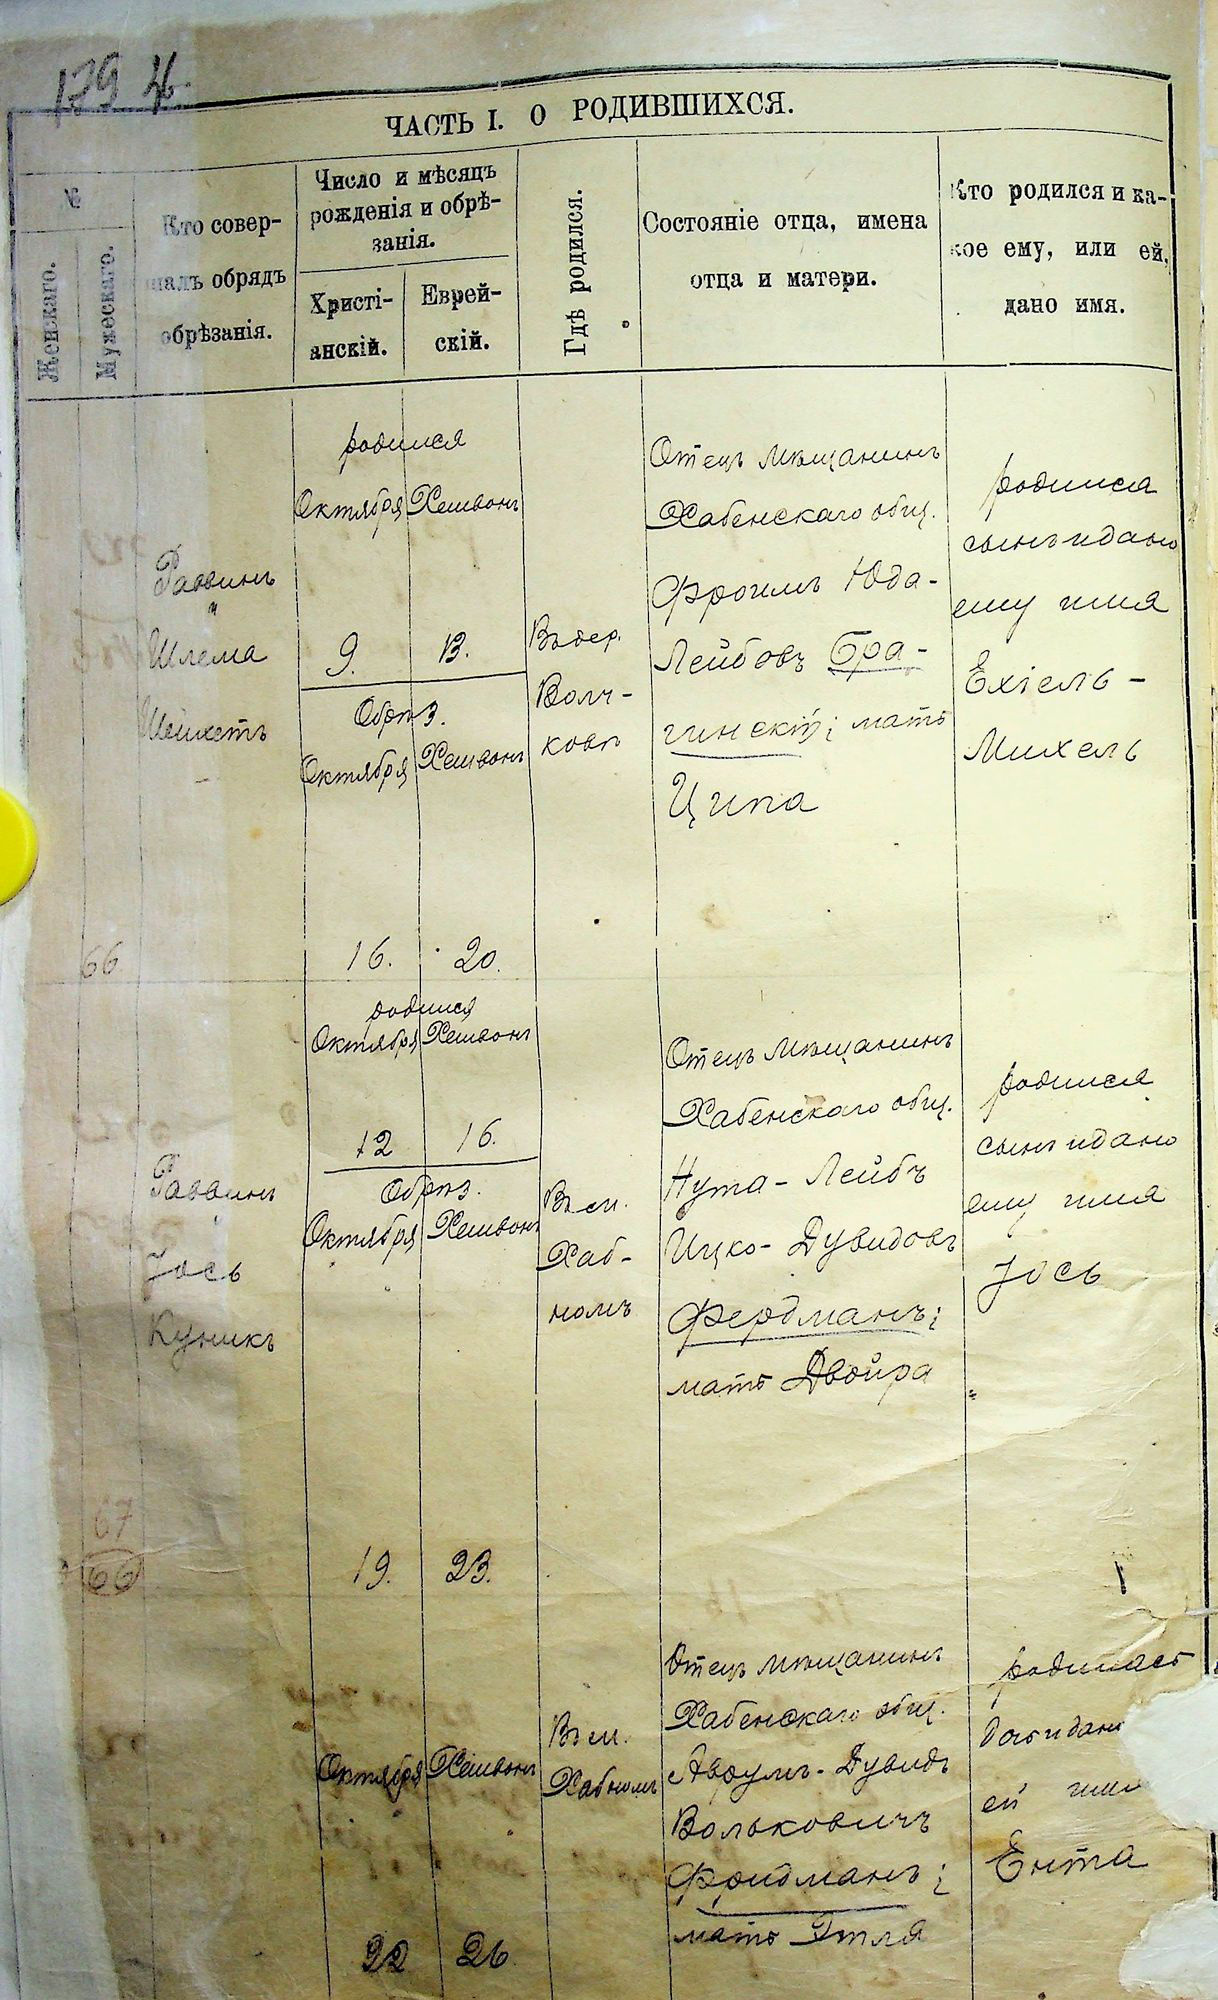 179
ЧАСТЬ I. О РОДИВШИХСЯ.
№
Женскаго.
Мужескаго.
Кто совер-
шалъ обрядъ
обрѣзанія.
Число и мѣсяцъ
рожденія и обрѣ-
занія.
Христі-
анскій.
Еврей-
скій.
Гдѣ родился.
Состояніе отца, имена
отца и матери.
Кто родился и ка-
кое ему, или ей,
дано имя.
66
Раввинъ
Шлема
Шейхетъ
родился
Октября Хешвонъ
9. 13.
Обрѣз.
Октября Хешвонъ
16. 20.
Въ дер.
Волч-
ковѣ
Отецъ мѣщанинъ
Хабенскаго общ.
Фроимъ Юда-
Лейбовъ Бра-
гинскій; мать
Ципа
родился
сынъ и дано
ему имя
Ехіель-
Михель
67
66
Раввинъ
Іось
Куникъ
родился
Октября Хешвонъ
12 16.
Обрѣз.
Октября Хешвонъ
19. 23.
Въ м.
Хаб-
номъ
Отецъ мѣщанинъ
Хабенскаго общ.
Нута-Лейбъ
Ицко-Дувидовъ
Фердманъ;
мать Двойра
родился
сынъ и дано
ему имя
Іось
Октября Хешвонъ
22 26
Въ м.
Хабномъ
Отецъ мѣщанинъ
Хабенскаго общ.
Аврумъ-Дувидъ
Вольковичъ
Фридманъ;
мать Этля
родилась
дочь и дан
ей им
Ента